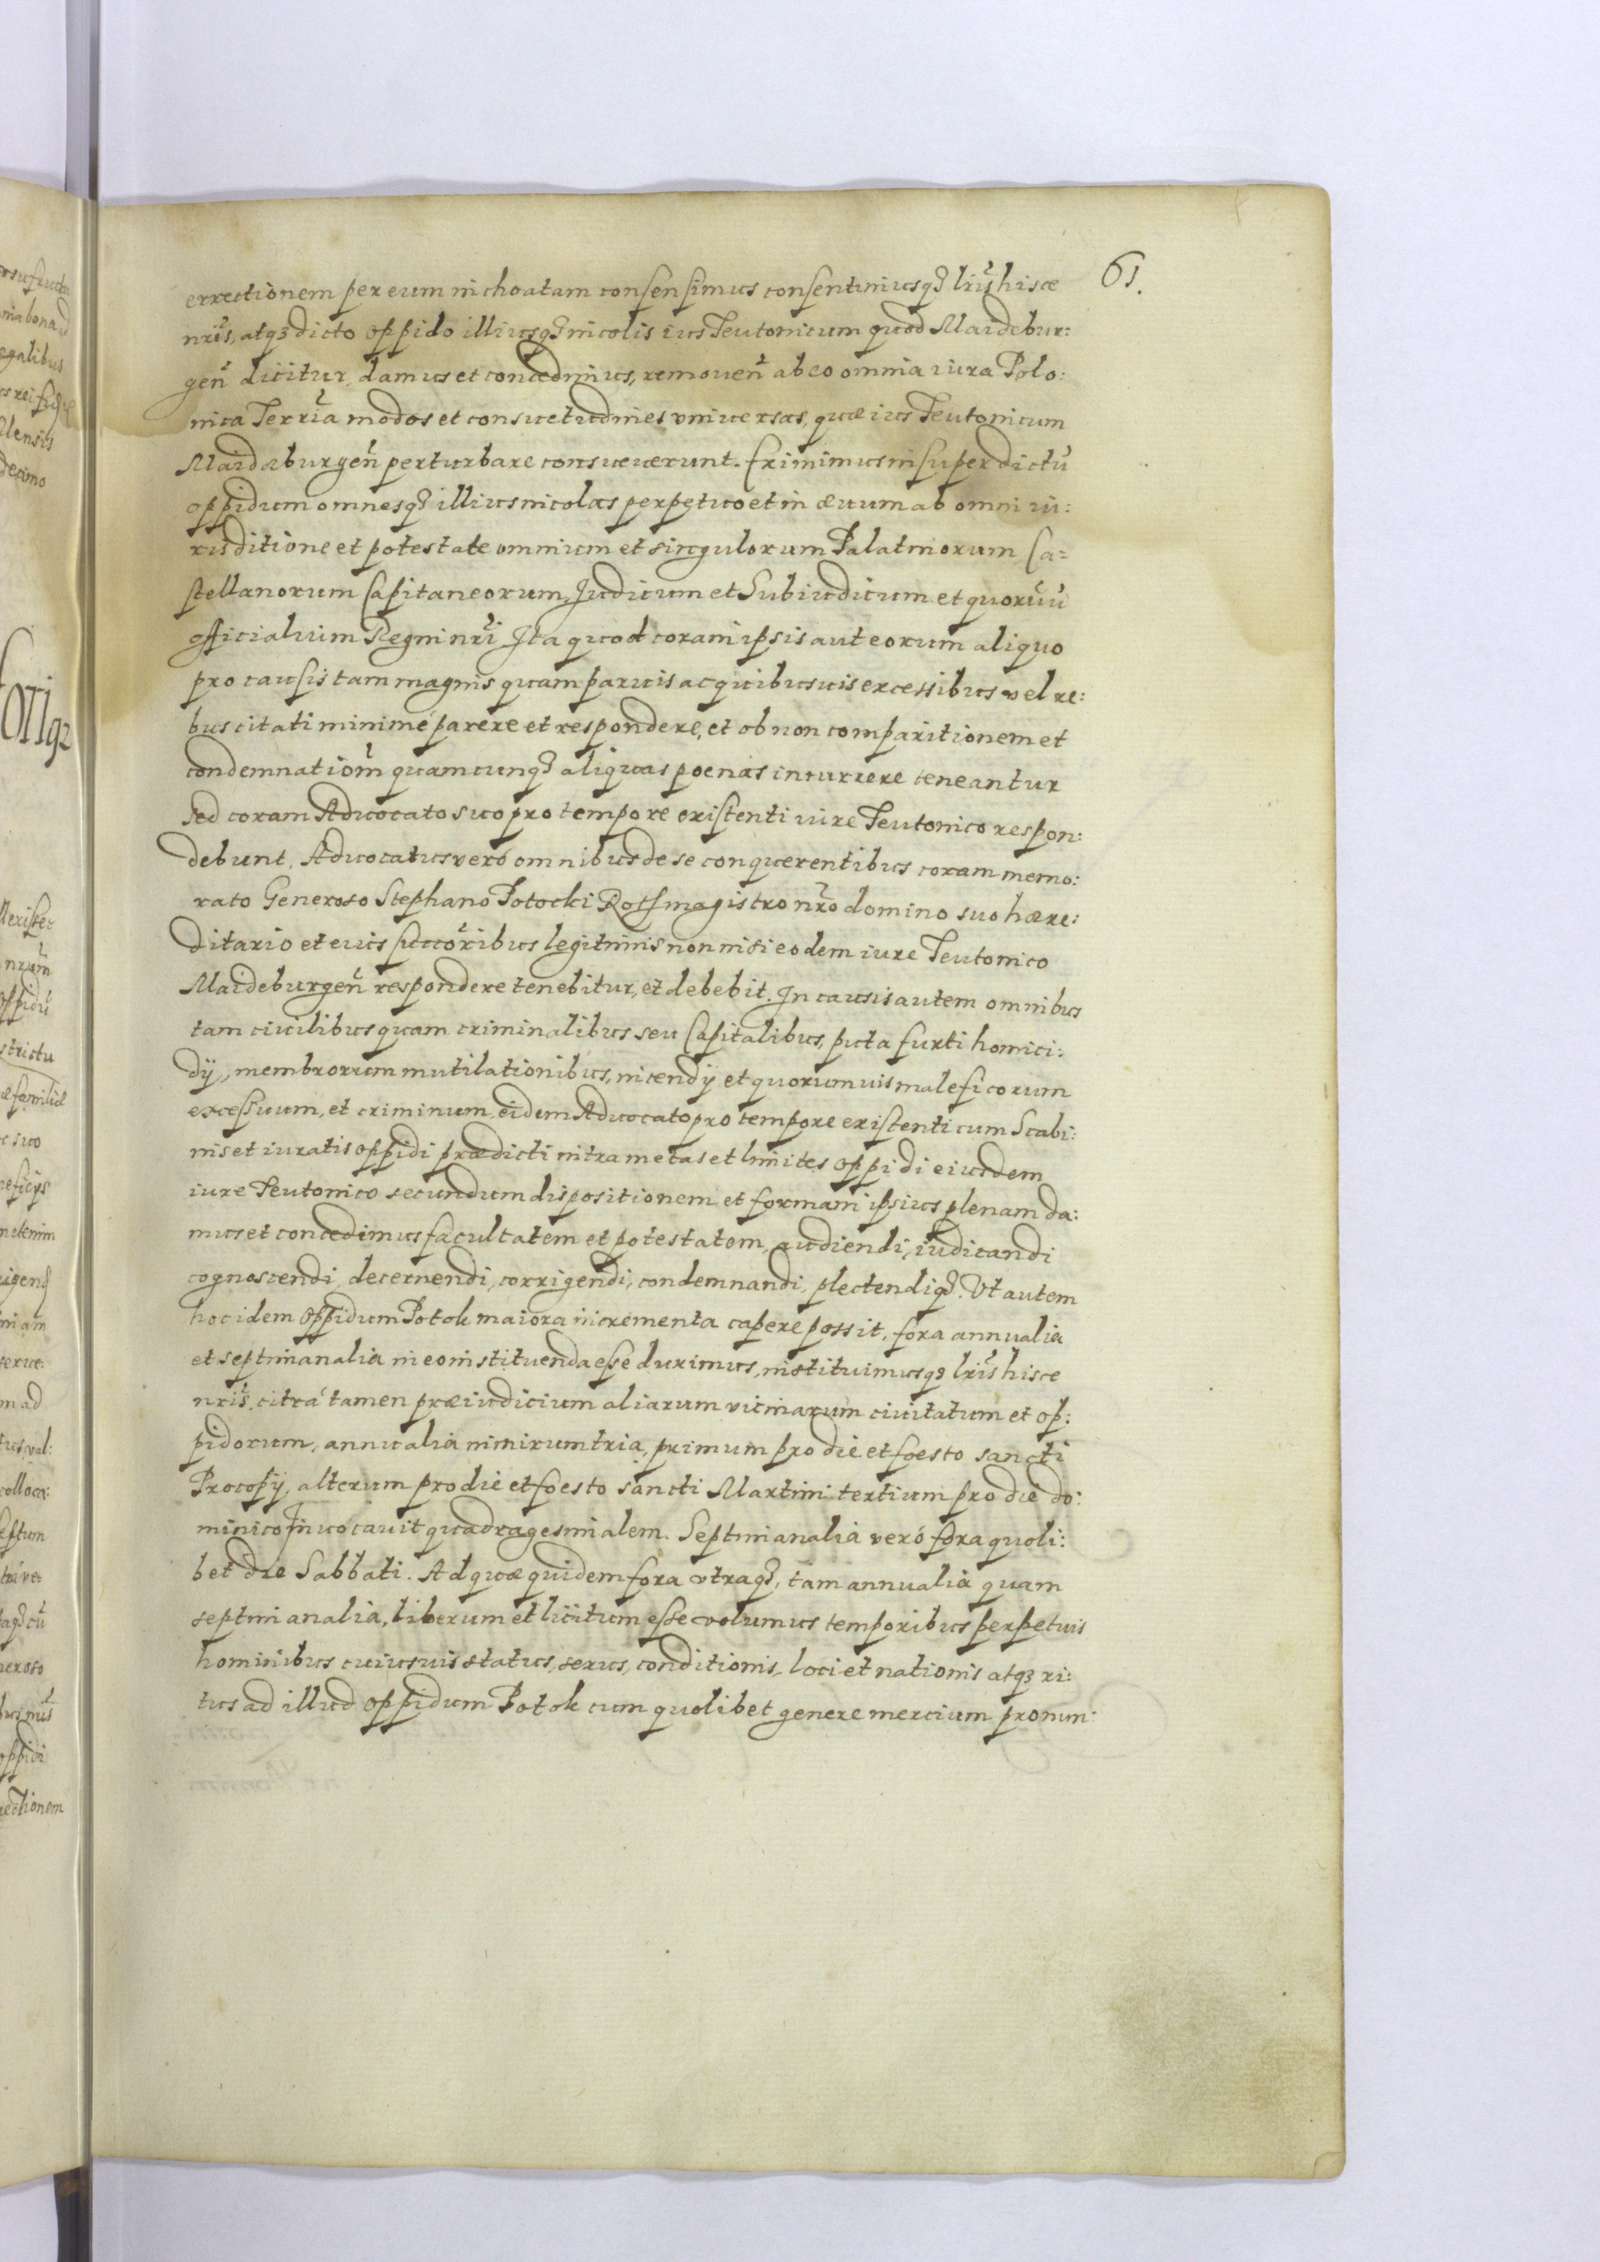 61.
errectionem per eum inchoatam consensimus consentimusq₃ lrĩs hisce
nrĩs, atq₃ dicto oppido illiusq₃ incolis ius Teutonicum quod Maidebur:
geñ dicitur, damus et concedimus, remoueñ ab eo omnia iura Polo:
nica Terrĩa modos et consuetudines vniuersas, quæ ius Teutonicum
Maideburgeñ perturbare consueuerunt. Eximimus insuper dictũ
oppidum omnesq₃ illius incolas perpetuo et in æuum ab omni iu:
risditione et potestate omnium et singulorum Palatinorum Ca=
stellanorum Capitaneorum, Judicum et Subiudicum et quorũuis
officialium Regni nrĩ. Ita quod coram ipsis aut eorum aliquo
pro causis tam magnis quam paruis ac quibusuis excessibus vel re:
bus citati minimé parere et respondere, et ob non comparitionem et
condemnatiom̃ quamcunq₃ aliquas poenas incurrere teneantur
sed coram Aduocato suo pro tempore existenti iure Teutonico respon:
debunt. Aduocatus veró omnibus de se conquerentibus coram memo:
rato Generoso Stephano Potocki Rotsmagistro nr̃o domino suo hære:
ditario et eius succõribus legitimis non nisi eodem iure Teutonico
Maideburgeñ respondere tenebitur, et debebit. In causis autem omnibus
tam ciuilibus quam criminalibus seu Capitalibus, puta furti homici:
dij, membrorum mutilationibus, incendij et quorumuis maleficorum
excessuum, et criminum, eidem Aduocato pro tempore existenti cum Scabi:
nis et iuratis oppidi prædicti intra metas et limites oppidi eiusdem
iure Teutonico secundum dispositionem et formam ipsius plenam da:
mus et concedimus facultatem et potestatem, audiendi, iudicandi
cognoscendi, decernendi, corrigendi, condemnandi, plectendiq₃. Vt autem
hoc idem oppidum Potok maiora incrementa capere possit, fora annualia
et septimanalia in eo instituenda esse duximus, instituimusq₃ lrĩs hisce
nrĩs, citrá tamen præiudicium aliarum vicinarum ciuitatum et op:
pidorum, annualia nimirum tria, primum pro die et foesto sancti
Procopij, alterum pro die et foesto sancti Martini tertium pro die do:
minico Inuocauit quadragesimalem. Septimanalia veró fora quoli:
bet die Sabbati. Ad quæ quidem fora vtraq₃, tam annualia quam
septimanalia, liberum et licitum esse volumus temporibus perpetuis
hominibus cuiusuis status, sexus, conditionis, loci et nationis atq₃ ri:
tus ad illud oppidum Potok cum quolibet genere mercium promm: